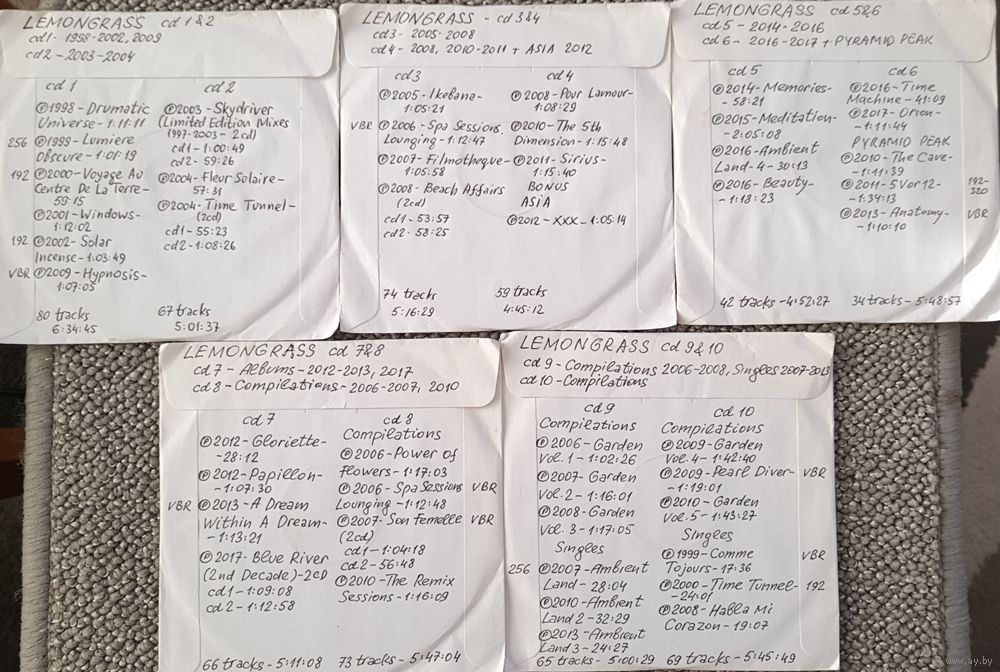 LEMONGRASS cd 1&2
cd1- 1998-2002, 2009
cd2 - 2003-2004
cd 1
℗1998 - Drumatic
Universe - 1:11:11
256 ℗1999 - Lumiere
Obscure - 1:01:19
192 ℗2000 - Voyage Au
Centre De La Terre -
59:15
℗2001 - Windows -
1:12:02
192 ℗2002 - Solar
Incense - 1:03:49
VBR ℗2009 - Hypnosis -
1:07:05
80 tracks
6:34:45
cd 2
℗2003 - Skydriver
(Limited Edition Mixes
1997-2003 - 2cd)
cd1 - 1:00:49
cd2 - 59:26
℗2004 - Fleur Solaire -
57:31
℗2004 - Time Tunnel -
(2cd)
cd1 - 55:23
cd2 - 1:08:26
67 tracks
5:01:37
LEMONGRASS - cd 3&4
cd3 - 2005-2008
cd4 - 2008, 2010-2011 + ASIA 2012
cd3
℗2005 - Ikebana -
1:05:21
VBR ℗2006 - Spa Sessions.
Lounging - 1:12:47
℗2007 - Filmotheque -
1:05:58
℗2008 - Beach Affairs
(2cd)
cd1 - 53:57
cd2 - 58:25
74 tracks
5:16:29
cd 4
℗2008 - Pour Lamour -
1:08:29
℗2010 - The 5th
Dimension - 1:15:48
℗2011 - Sirius -
1:15:40
BONUS
ASIA
℗2012 - XXX - 1:05:14
59 tracks
4:45:12
LEMONGRASS cd 5&6
cd 5 - 2014-2016
cd 6 - 2016-2017 + PYRAMID PEAK
cd 5
℗2014 - Memories -
- 58:21
℗2015 - Meditation -
- 2:05:08
℗2016 - Ambient
Land - 4 - 30:13
℗2016 - Beauty -
- 1:18:23
42 tracks - 4:52:27
cd6
℗2016 - Time
Machine - 41:09
℗2017 - Orion -
- 1:11:44
PYRAMID PEAK
℗2010 - The Cave -
- 1:11:39
℗2011 - 5 Vor 12 -
- 1:34:13
192-
320
℗2013 - Anatomy - VBR
- 1:10:10
34 tracks - 5:48:57
LEMONGRASS cd 7&8
cd 7 - Albums - 2012-2013, 2017
cd 8 - Compilations - 2006-2007, 2010
cd 7
℗2012 - Gloriette -
- 28:12
℗2012 - Papillon -
- 1:07:30
VBR ℗2013 - A Dream
Within A Dream -
- 1:13:21
℗2017 - Blue River
(2nd Decade) - 2CD
cd 1 - 1:09:08
cd 2 - 1:12:58
66 tracks - 5:11:08
cd 8
Compilations
℗2006 - Power of
Flowers - 1:17:03
℗2006 - Spa Sessions VBR
Lounging - 1:12:48
℗2007 - Son Femelle VBR
(2cd)
cd1 - 1:04:18
cd2 - 56:48
℗2010 - The Remix
Sessions - 1:16:09
73 tracks - 5:47:04
LEMONGRASS cd 9&10
cd 9 - Compilations 2006-2008, Singles 2007-2013
cd 10 - Compilations
cd 9
Compilations
℗2006 - Garden
Vol. 1 - 1:02:26
℗2007 - Garden
Vol. 2 - 1:16:01
℗2008 - Garden
Vol. 3 - 1:17:05
Singles
256 ℗2007 - Ambient
Land - 28:04
℗2010 - Ambient
Land 2 - 32:29
℗2013 - Ambient
Land 3 - 24:27
65 tracks - 5:00:29
cd 10
Compilations
℗2009 - Garden
Vol. 4 - 1:42:40
℗2009 - Pearl Diver - VBR
- 1:19:01
℗2010 - Garden
Vol. 5 - 1:43:27
Singles
℗1999 - Comme VBR
Tojours - 17:36
℗2000 - Time Tunnel - 192
- 24:01
℗2008 - Habla Mi
Corazon - 19:07
69 tracks - 5:45:49
www.ay.by